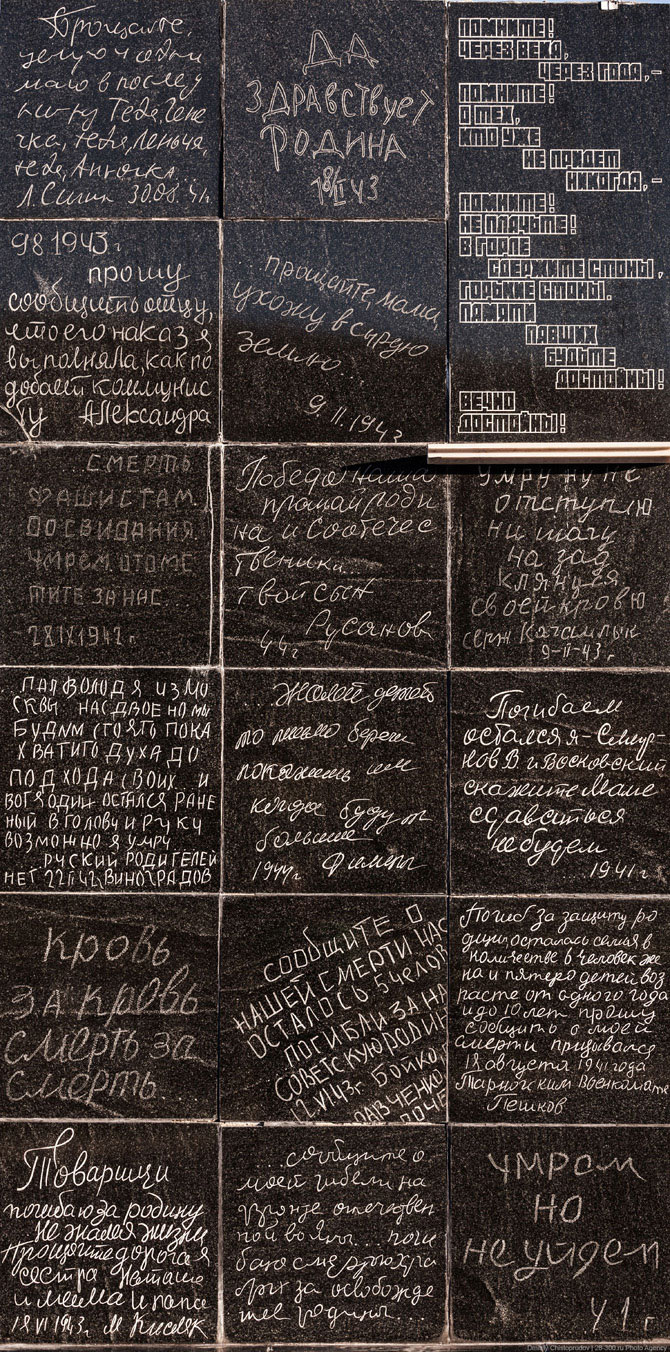 Прощайте,
целую
мало в послед
Тетя,
тетя, Ленька,
тетя, Анночка...
30.08.41г
ДА
ЗДРАВСТВУЕТ
РОДИНА
18/II 43
ПОМНИТЕ!
ЧЕРЕЗ ВЕКА,
ЧЕРЕЗ ГОДА,-
ПОМНИТЕ!
О ТЕХ,
КТО УЖЕ
НЕ ПРИДЕТ
НИКОГДА,-
ПОМНИТЕ!
НЕ ПЛАЧЬТЕ!
В ГОРЛЕ
СДЕРЖИТЕ СТОНЫ,
ГОРЬКИЕ СТОНЫ.
ПАМЯТИ
ПАВШИХ
БУДЬТЕ
ДОСТОЙНЫ!
ВЕЧНО
ДОСТОЙНЫ!
98 1943г.
прошу
сообщить отцу,
что его наказ я
выполняла, как по
добает коммунис
ту Александра
...прощайте мама,
ухожу в сырую
землю...
9 II.1943
...СМЕРТЬ
ФАШИСТАМ.
ДО СВИДАНИЯ.
УМРЕМ ОТОМС
ТИТЕ ЗА НАС...
1942г.
Победа наша
прощай роди
на и Соотечес
твеники...
твой сын
Русанов
44г
Умру ну не
отступлю
ни шагу
на зад
клянуся
своей кровю
серж
9-II-43г.
...ПАЛ ВОЛОДЯ ИЗ МО
СКВЫ НАС ДВОЕ НО МЫ
БУДИМ СТОЯТЬ ПОКА
ХВАТИТ ДУХА ДО
ПОДХОДА СВОИХ И
ВОТ Я ОДИН ОСТАЛСЯ РАНЕ
НЫЙ В ГОЛОВУ И РУКУ
ВОЗМОЖНО Я УМРУ
...РУСКИЙ РОДИТЕЛЕЙ
НЕТ 22 II 42 ВИНОГРАДОВ
...Жалей детей
то письмо береги
покажишь им
когда будут
большие
1944г.
Погибаем
остался я - Смир-
нов В и Восковский
скажите Маме
сдаваться
не будем
...1941г.
Кровь
за кровь
смерть за
смерть...
СООБЩИТЕ О
НАШЕЙ СМЕРТИ НАС
ОСТАЛОСЬ 5 ЧЕЛОВ
ПОГИБЛИ ЗА НА
СОВЕТСКУЮ РОДИН
12.VI 43г. БОЙКО
РАВЧЕНКО
ПОЧЕ
Погиб за защиту ро
дины осталась семья в
количестве 6 человек же
на и пятеро детей воз
расте от одного года
и до 10 лет прошу
сообщить о моей
смерти призывался
18 августа 1941 года
Тарногским Военкоматом
Пешков
Товарищи
погибаю за родину
Не жалея жизни
Прощайте дорогая
сестра Наташа
и мама и папа
18 VI 1943г. М Кисляк
...сообщите о
моей гибели на
фронте отечествен
ной войны... поги
баю смертью хра
брых за освобожде
ние родины...
умрем
но
не уйдем
41г
Dmitry Chistoprudov | 28-300.ru Photo Agency